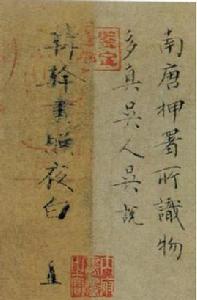 南唐押署所識物
多真吳人吳說
韓幹畫照夜白